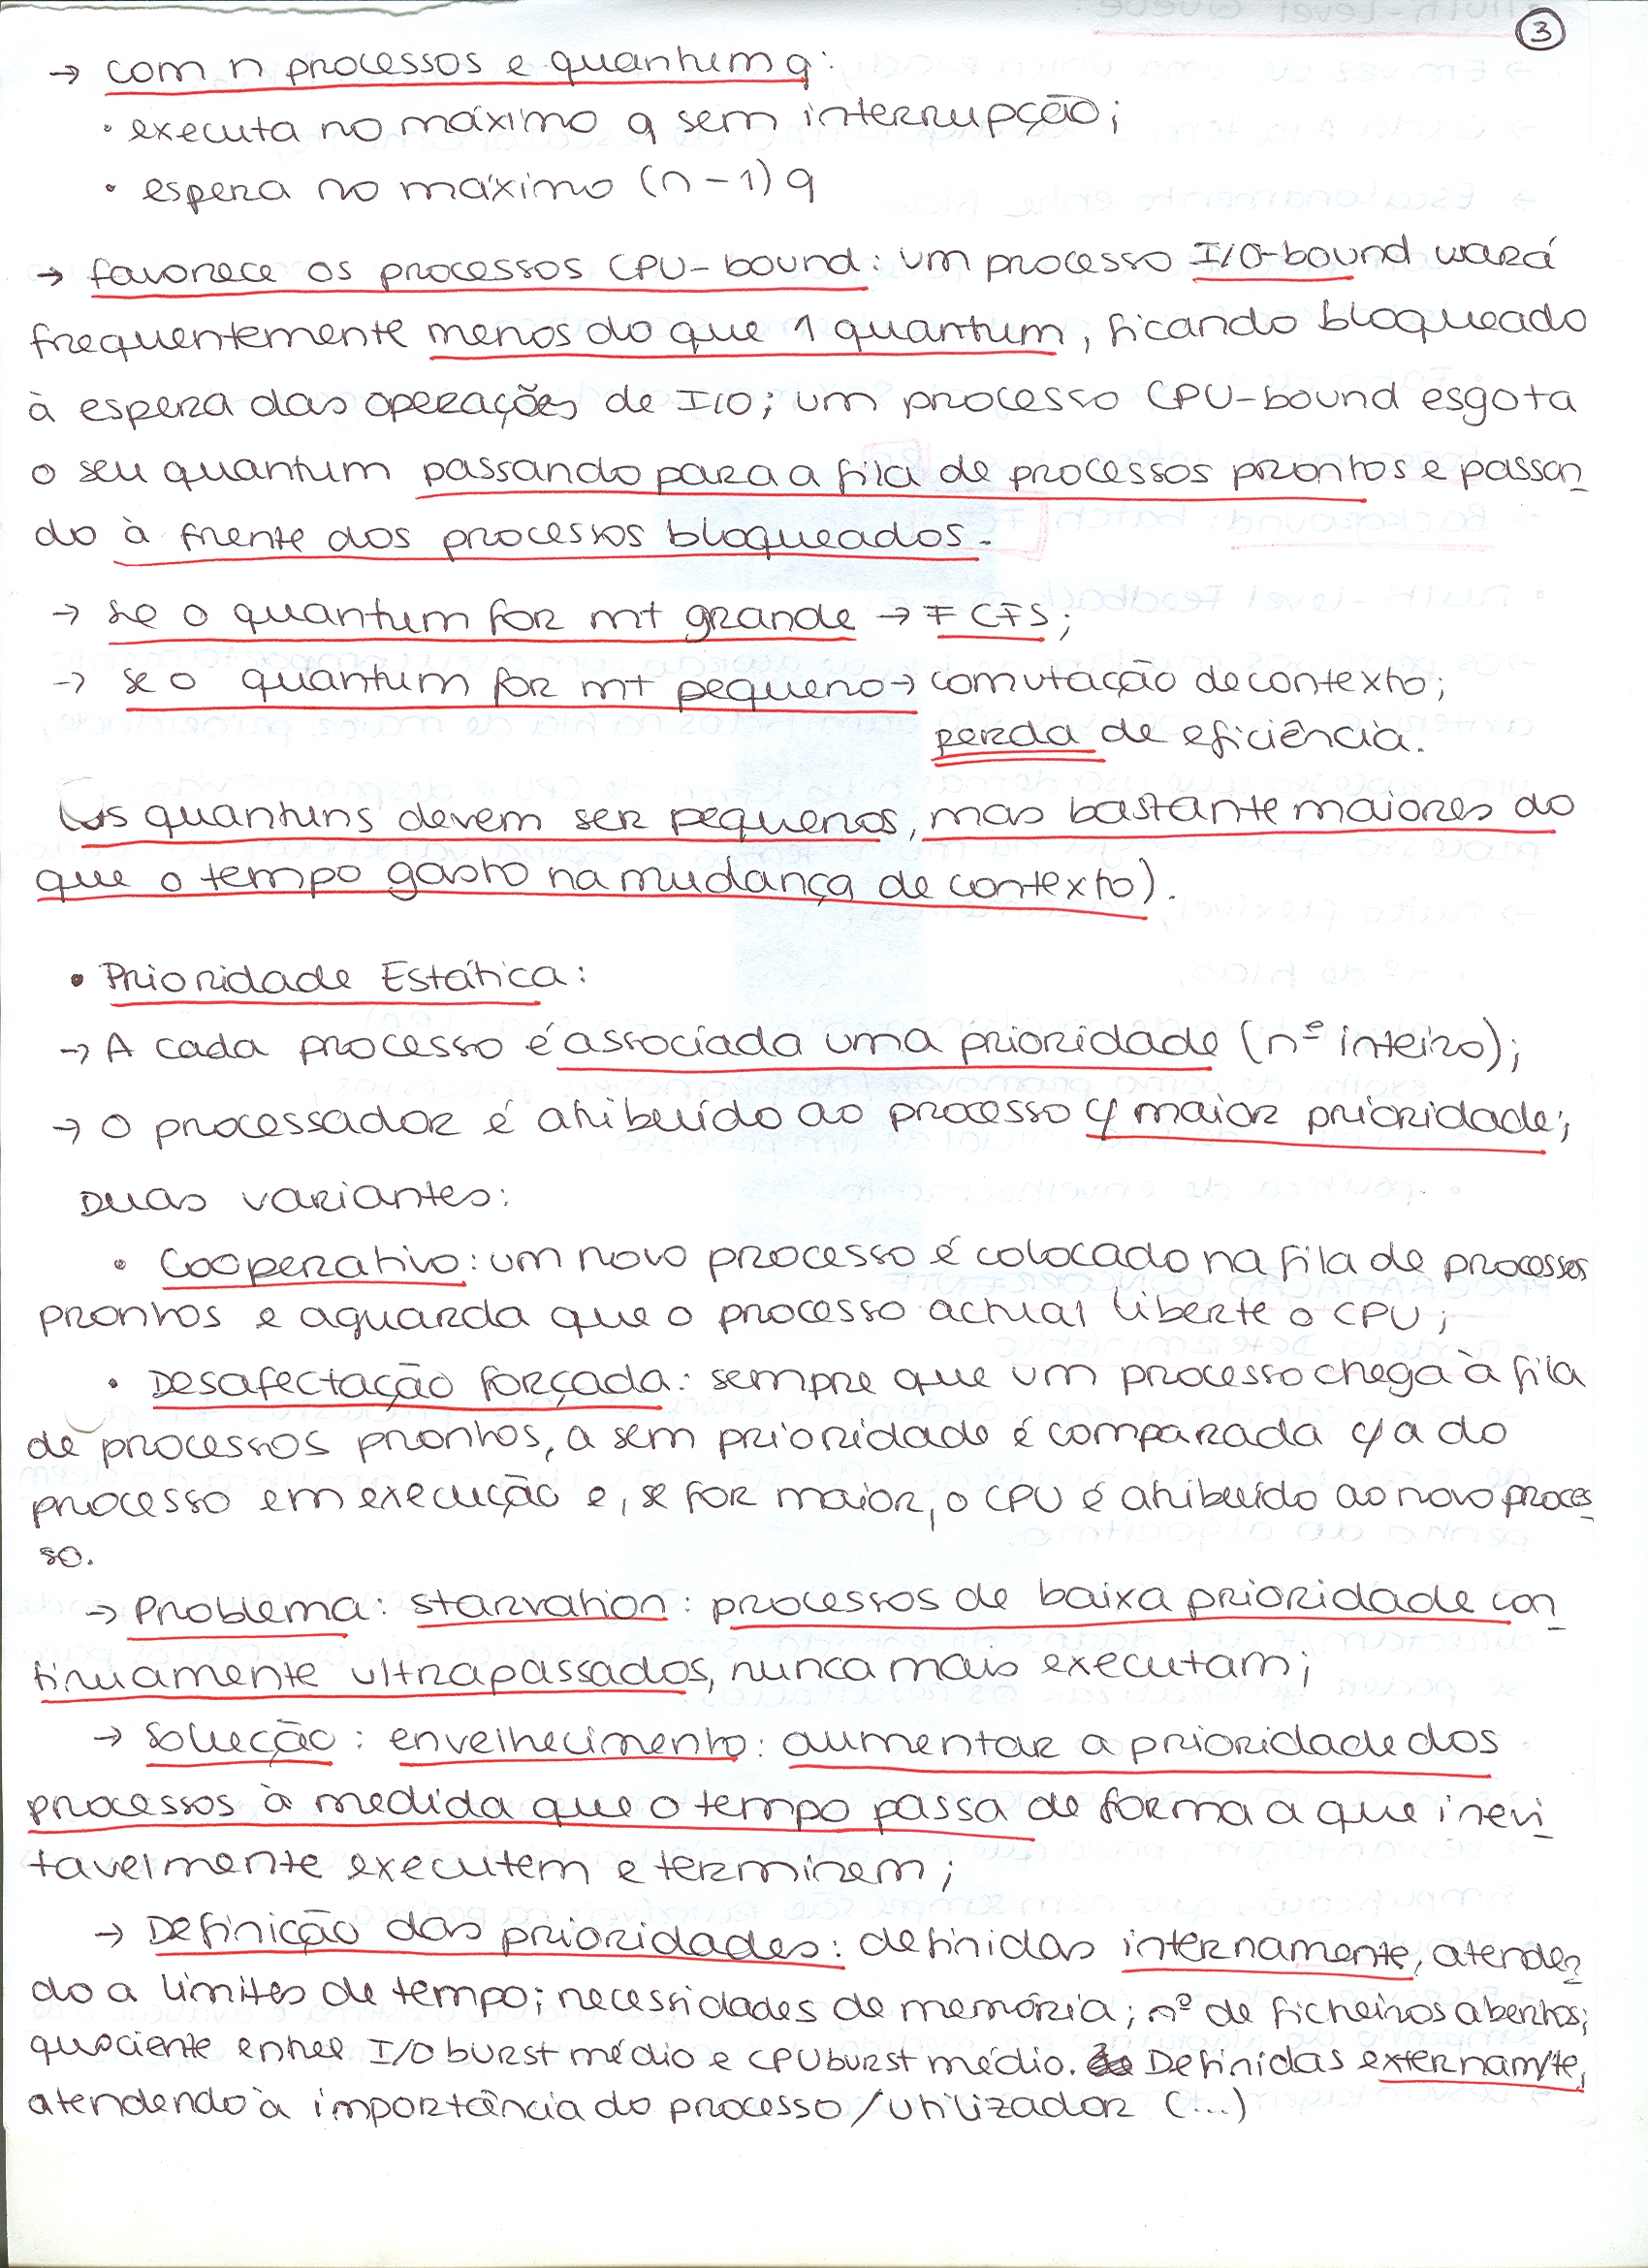 3
→ com n processos e quantum q:
• executa no máximo q sem interrupção;
• espera no máximo (n-1)q
→ favorece os processos CPU-bound: um processo I/O-bound usará
frequentemente menos do que 1 quantum, ficando bloqueado
à espera das operações de I/O; um processo CPU-bound esgota
o seu quantum passando para a fila de processos prontos e passan_
do à frente dos processos bloqueados.
→ se o quantum for mt grande → FCFS;
→ se o quantum for mt pequeno → comutação de contexto;
perda de eficiência.
(os quantuns devem ser pequenos, mas bastante maiores do
que o tempo gasto na mudança de contexto).
• Prioridade Estática:
→ A cada processo é associada uma prioridade (nº inteiro);
→ O processador é atribuído ao processo c/ maior prioridade;
Duas variantes:
• Cooperativo: um novo processo é colocado na fila de processos
prontos e aguarda que o processo actual liberte o CPU;
• Desafectação forçada: sempre que um processo chega à fila
de processos prontos, a sem prioridade é comparada c/ a do
processo em execução e, se for maior, o CPU é atribuído ao novo proces_
so.
→ Problema: starvation: processos de baixa prioridade con_
tinuamente ultrapassados, nunca mais executam;
→ Solução: envelhecimento: aumentar a prioridade dos
processos à medida que o tempo passa de forma a que inevi_
tavelmente executem e terminem;
→ Definição das prioridades: definidas internamente, atenden_
do a limites de tempo; necessidades de memória; nº de ficheiros abertos;
quociente entre I/O burst médio e CPU burst médio. Definidas externam/te,
atendendo à importância do processo/utilizador (...)